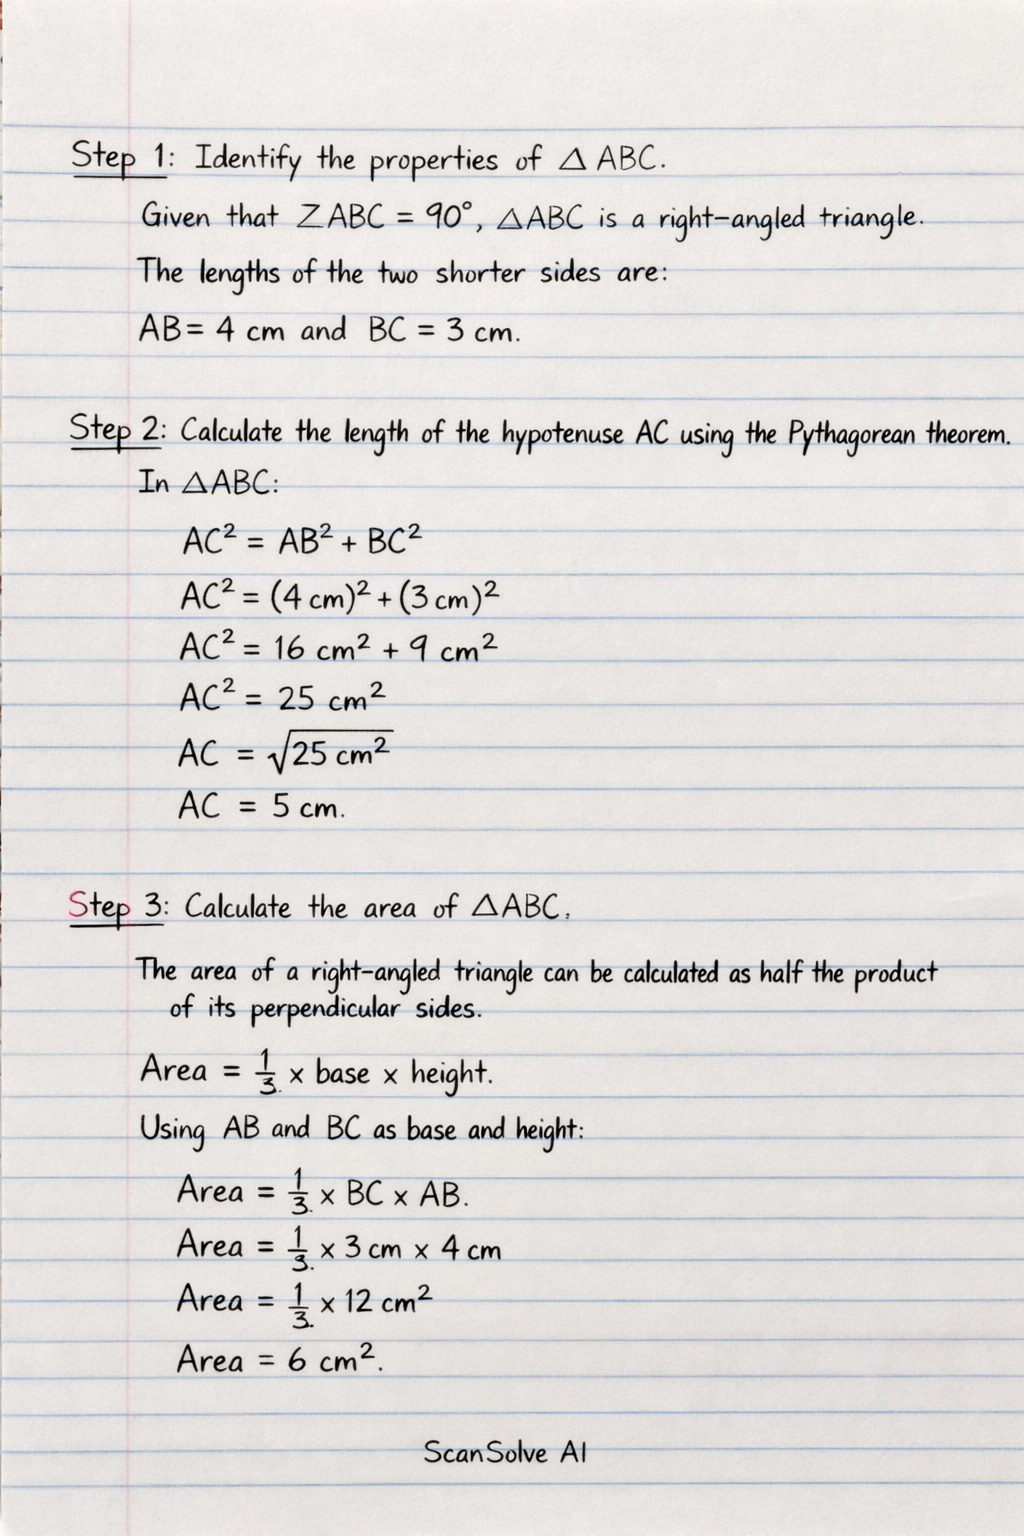 Step 1: Identify the properties of △ ABC.
Given that ∠ABC = 90°, △ABC is a right-angled triangle.
The lengths of the two shorter sides are:
AB = 4 cm and BC = 3 cm.
Step 2: Calculate the length of the hypotenuse AC using the Pythagorean theorem.
In △ABC:
AC² = AB² + BC²
AC² = (4 cm)² + (3 cm)²
AC² = 16 cm² + 9 cm²
AC² = 25 cm²
AC = √25 cm²
AC = 5 cm.
Step 3: Calculate the area of △ABC.
The area of a right-angled triangle can be calculated as half the product
of its perpendicular sides.
Area = 1/3. × base × height.
Using AB and BC as base and height:
Area = 1/3. × BC × AB.
Area = 1/3. × 3 cm × 4 cm
Area = 1/3. × 12 cm²
Area = 6 cm².
ScanSolve AI